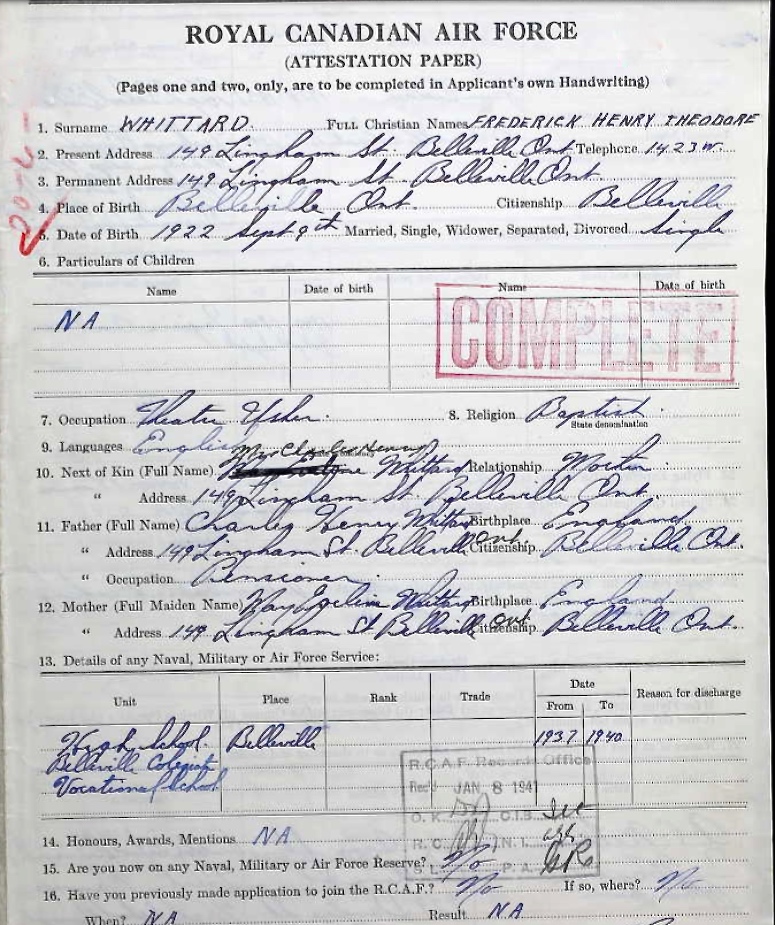 ROYAL CANADIAN AIR FORCE
(ATTESTATION PAPER)
(Pages one and two, only, are to be completed in Applicant's own Handwriting)
1. Surname WHITTARD. FULL Christian Names FREDERICK HENRY THEODORE
2. Present Address 149 Lingham St. Belleville Ont. Telephone 1423W.
3. Permanent Address 149 Lingham St. Belleville Ont.
4. Place of Birth Belleville Ont. Citizenship Belleville
5. Date of Birth 1922 Sept 9th Married, Single, Widower, Separated, Divorced Single
6. Particulars of Children
Name Date of birth Name Date of birth
NA
COMPLETE
7. Occupation Theatre Usher. 8. Religion Baptist
State denomination
9. Languages English
Mrs Charles Henry
10. Next of Kin (Full Name) Whittard Relationship Mother
" Address 149 Lingham St. Belleville Ont.
11. Father (Full Name) Charles Henry Whittard Birthplace England
" Address 149 Lingham St. Belleville Ont. Citizenship Belleville Ont.
" Occupation Pensioner
12. Mother (Full Maiden Name) May Whittard Birthplace England
" Address 149 Lingham St Belleville Ont Citizenship Belleville Ont.
13. Details of any Naval, Military or Air Force Service:
Unit Place Rank Trade Date Reason for discharge
From To
High School. Belleville 1937 1940
Belleville Colegiate
Vocational School
R.C.A.F. Records Office
Rec'd JAN 8 1941
O.K. C.I.B.
R.C. N.I.
S.L. P.A.
14. Honours, Awards, Mentions NA
15. Are you now on any Naval, Military or Air Force Reserve? No
16. Have you previously made application to join the R.C.A.F.? No If so, where? No
When? NA Result NA